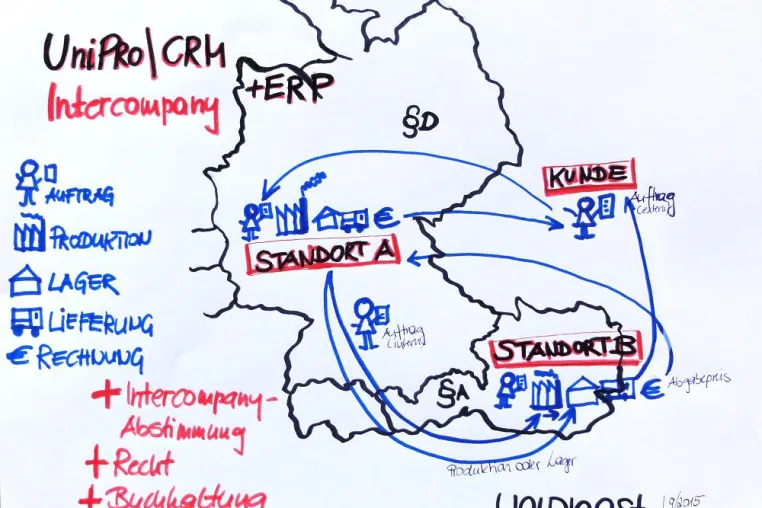 UniPRo|CRM
+ERP
Intercompany
§D
KUNDE
Auftrag
AUFTRAG
PRODUKTION
€
STANDORT A
LAGER
LIEFERUNG
Auftrag
€ RECHNUNG
STANDORT B
€
Abgabepreis
§A
+ Intercompany-
Abstimmung
+ Recht
Produktion oder Lager
+ Buchhaltung
9/2015